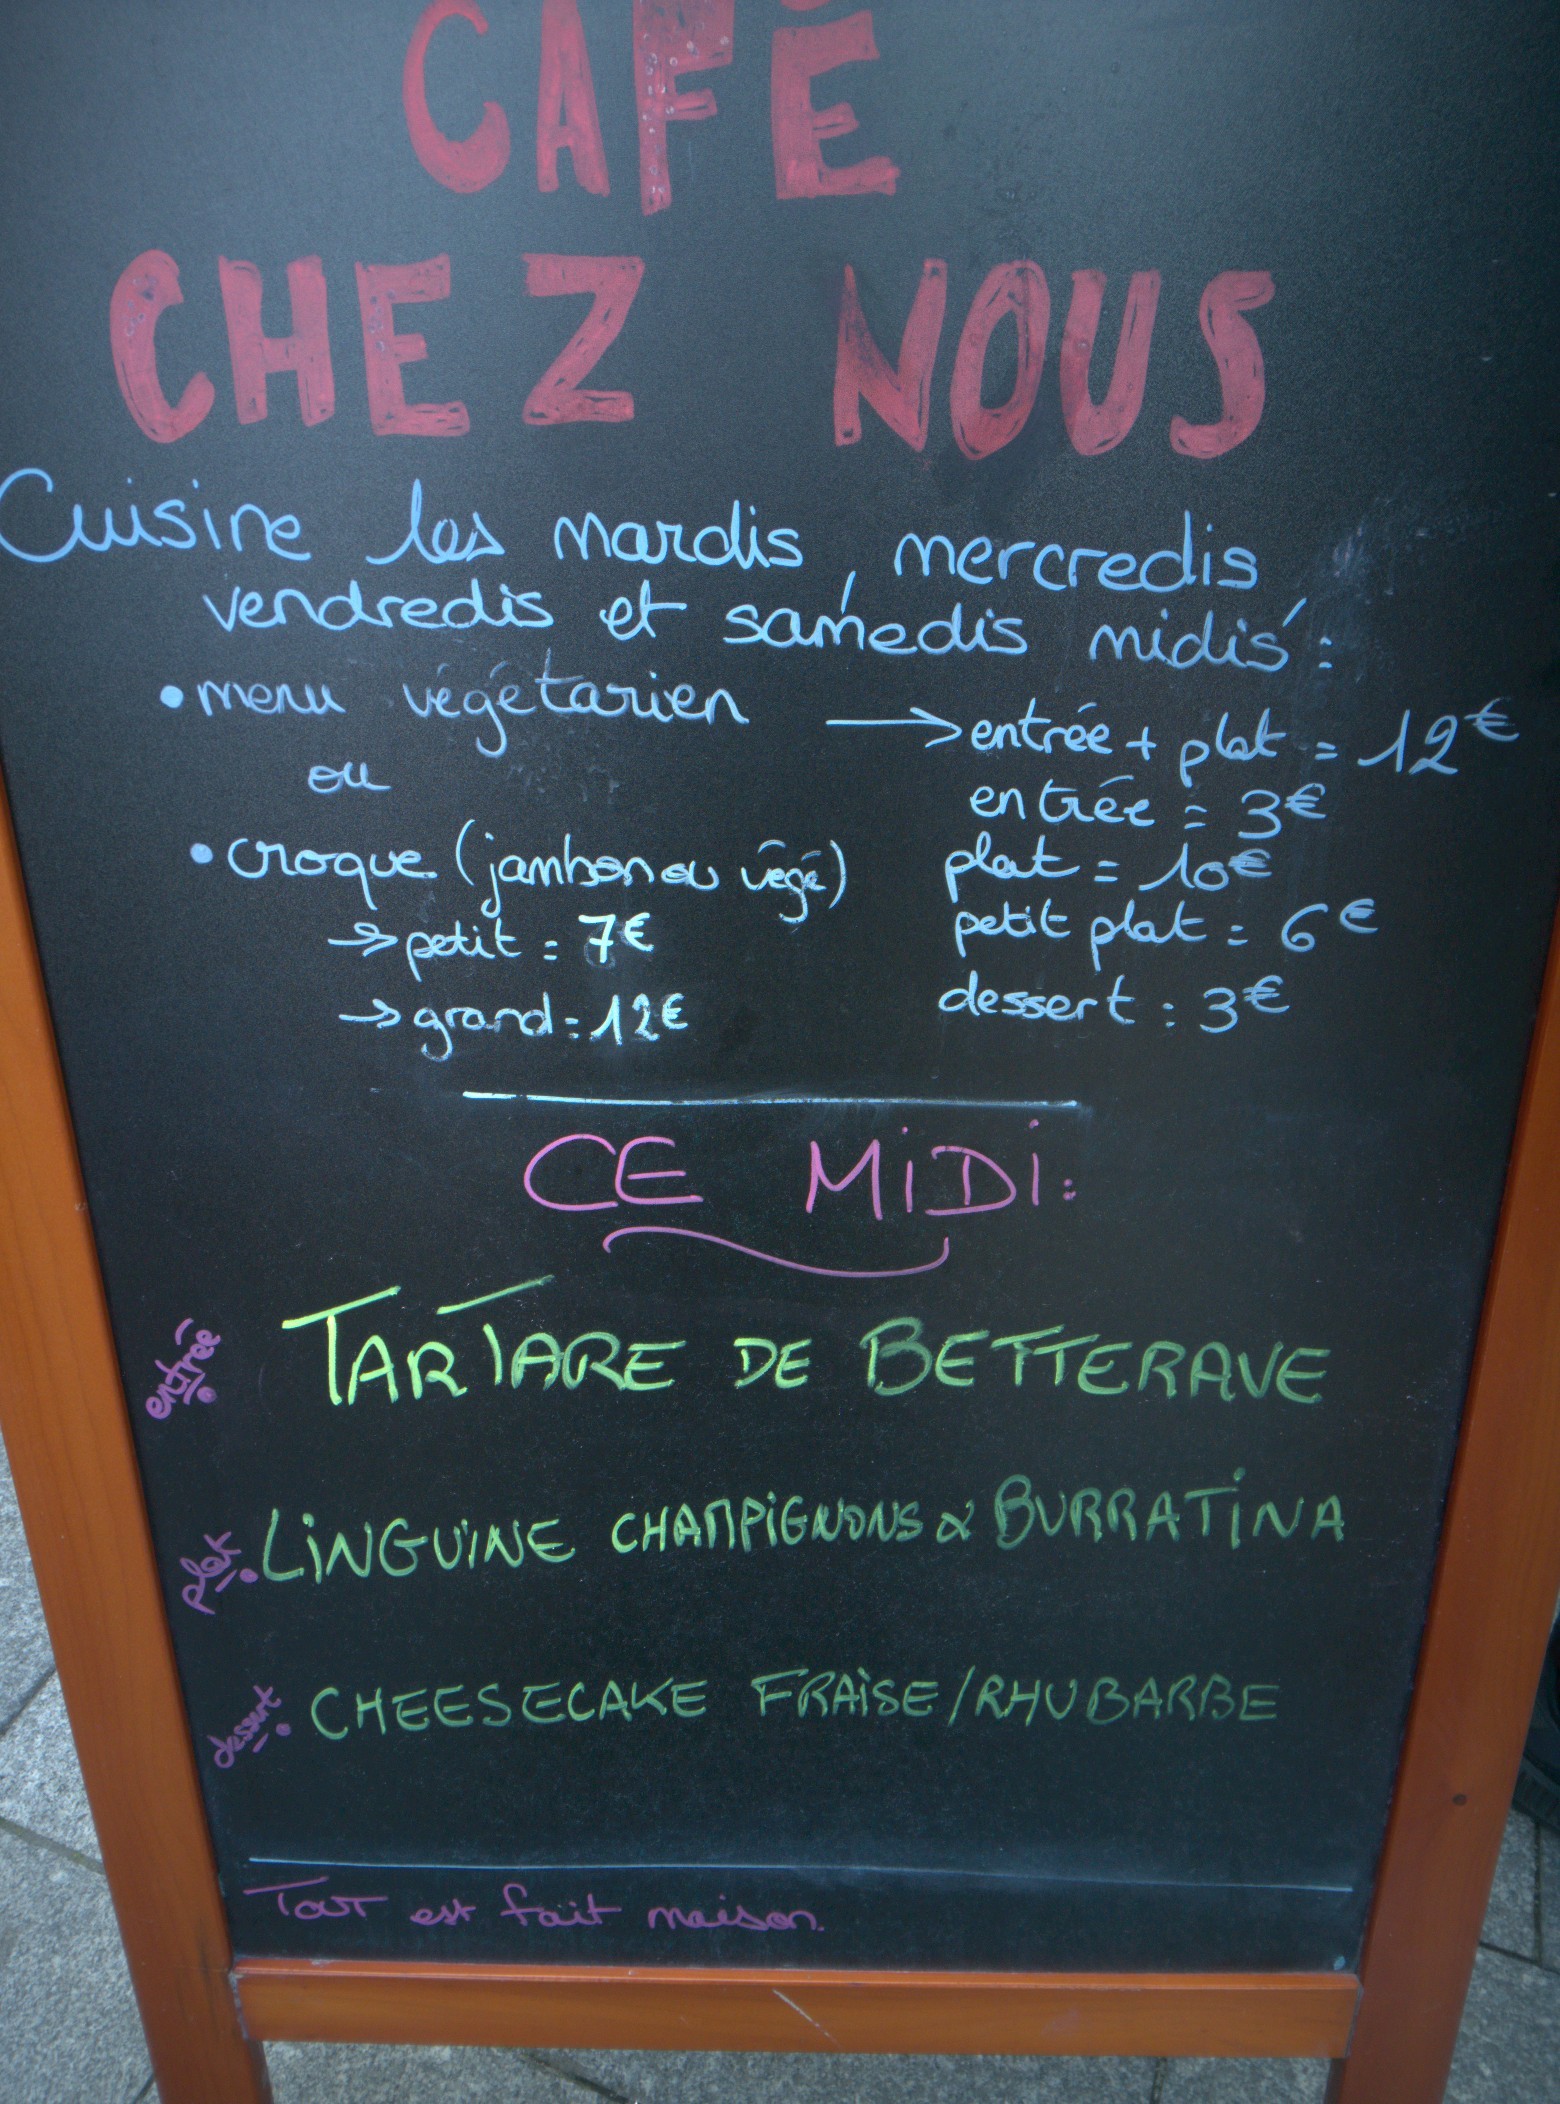 CAFÉ
CHEZ NOUS
Cuisine les mardis, mercredis,
vendredis et samedis midis :
• menu végétarien → entrée + plat = 12€
ou
entrée = 3€
• croque (jambon ou végé)
plat = 10€
→ petit = 7€
petit plat = 6€
→ grand = 12€
dessert : 3€
CE MIDI :
entrée : TARTARE DE BETTERAVE
plat : LINGUINE CHAMPIGNONS & BURRATINA
dessert : CHEESECAKE FRAISE/RHUBARBE
Tout est fait maison.